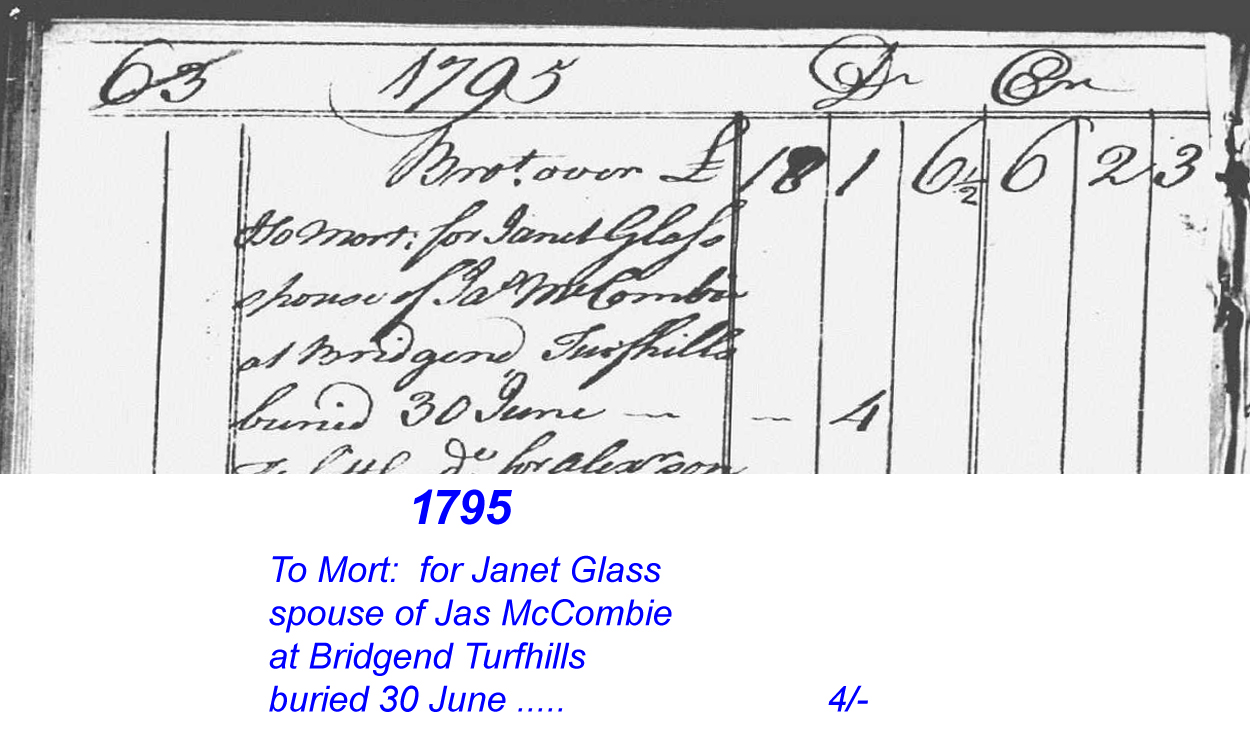 63 1795 Dr Cr
Brot. over £ 18 1 6½ 6 2 3
To Mort: for Janet Glass
spouse of Jas McCombie
at Bridgend Turfhills
buried 30 June — — 4
do for Alexr son
1795
To Mort: for Janet Glass
spouse of Jas McCombie
at Bridgend Turfhills
buried 30 June ..... 4/-